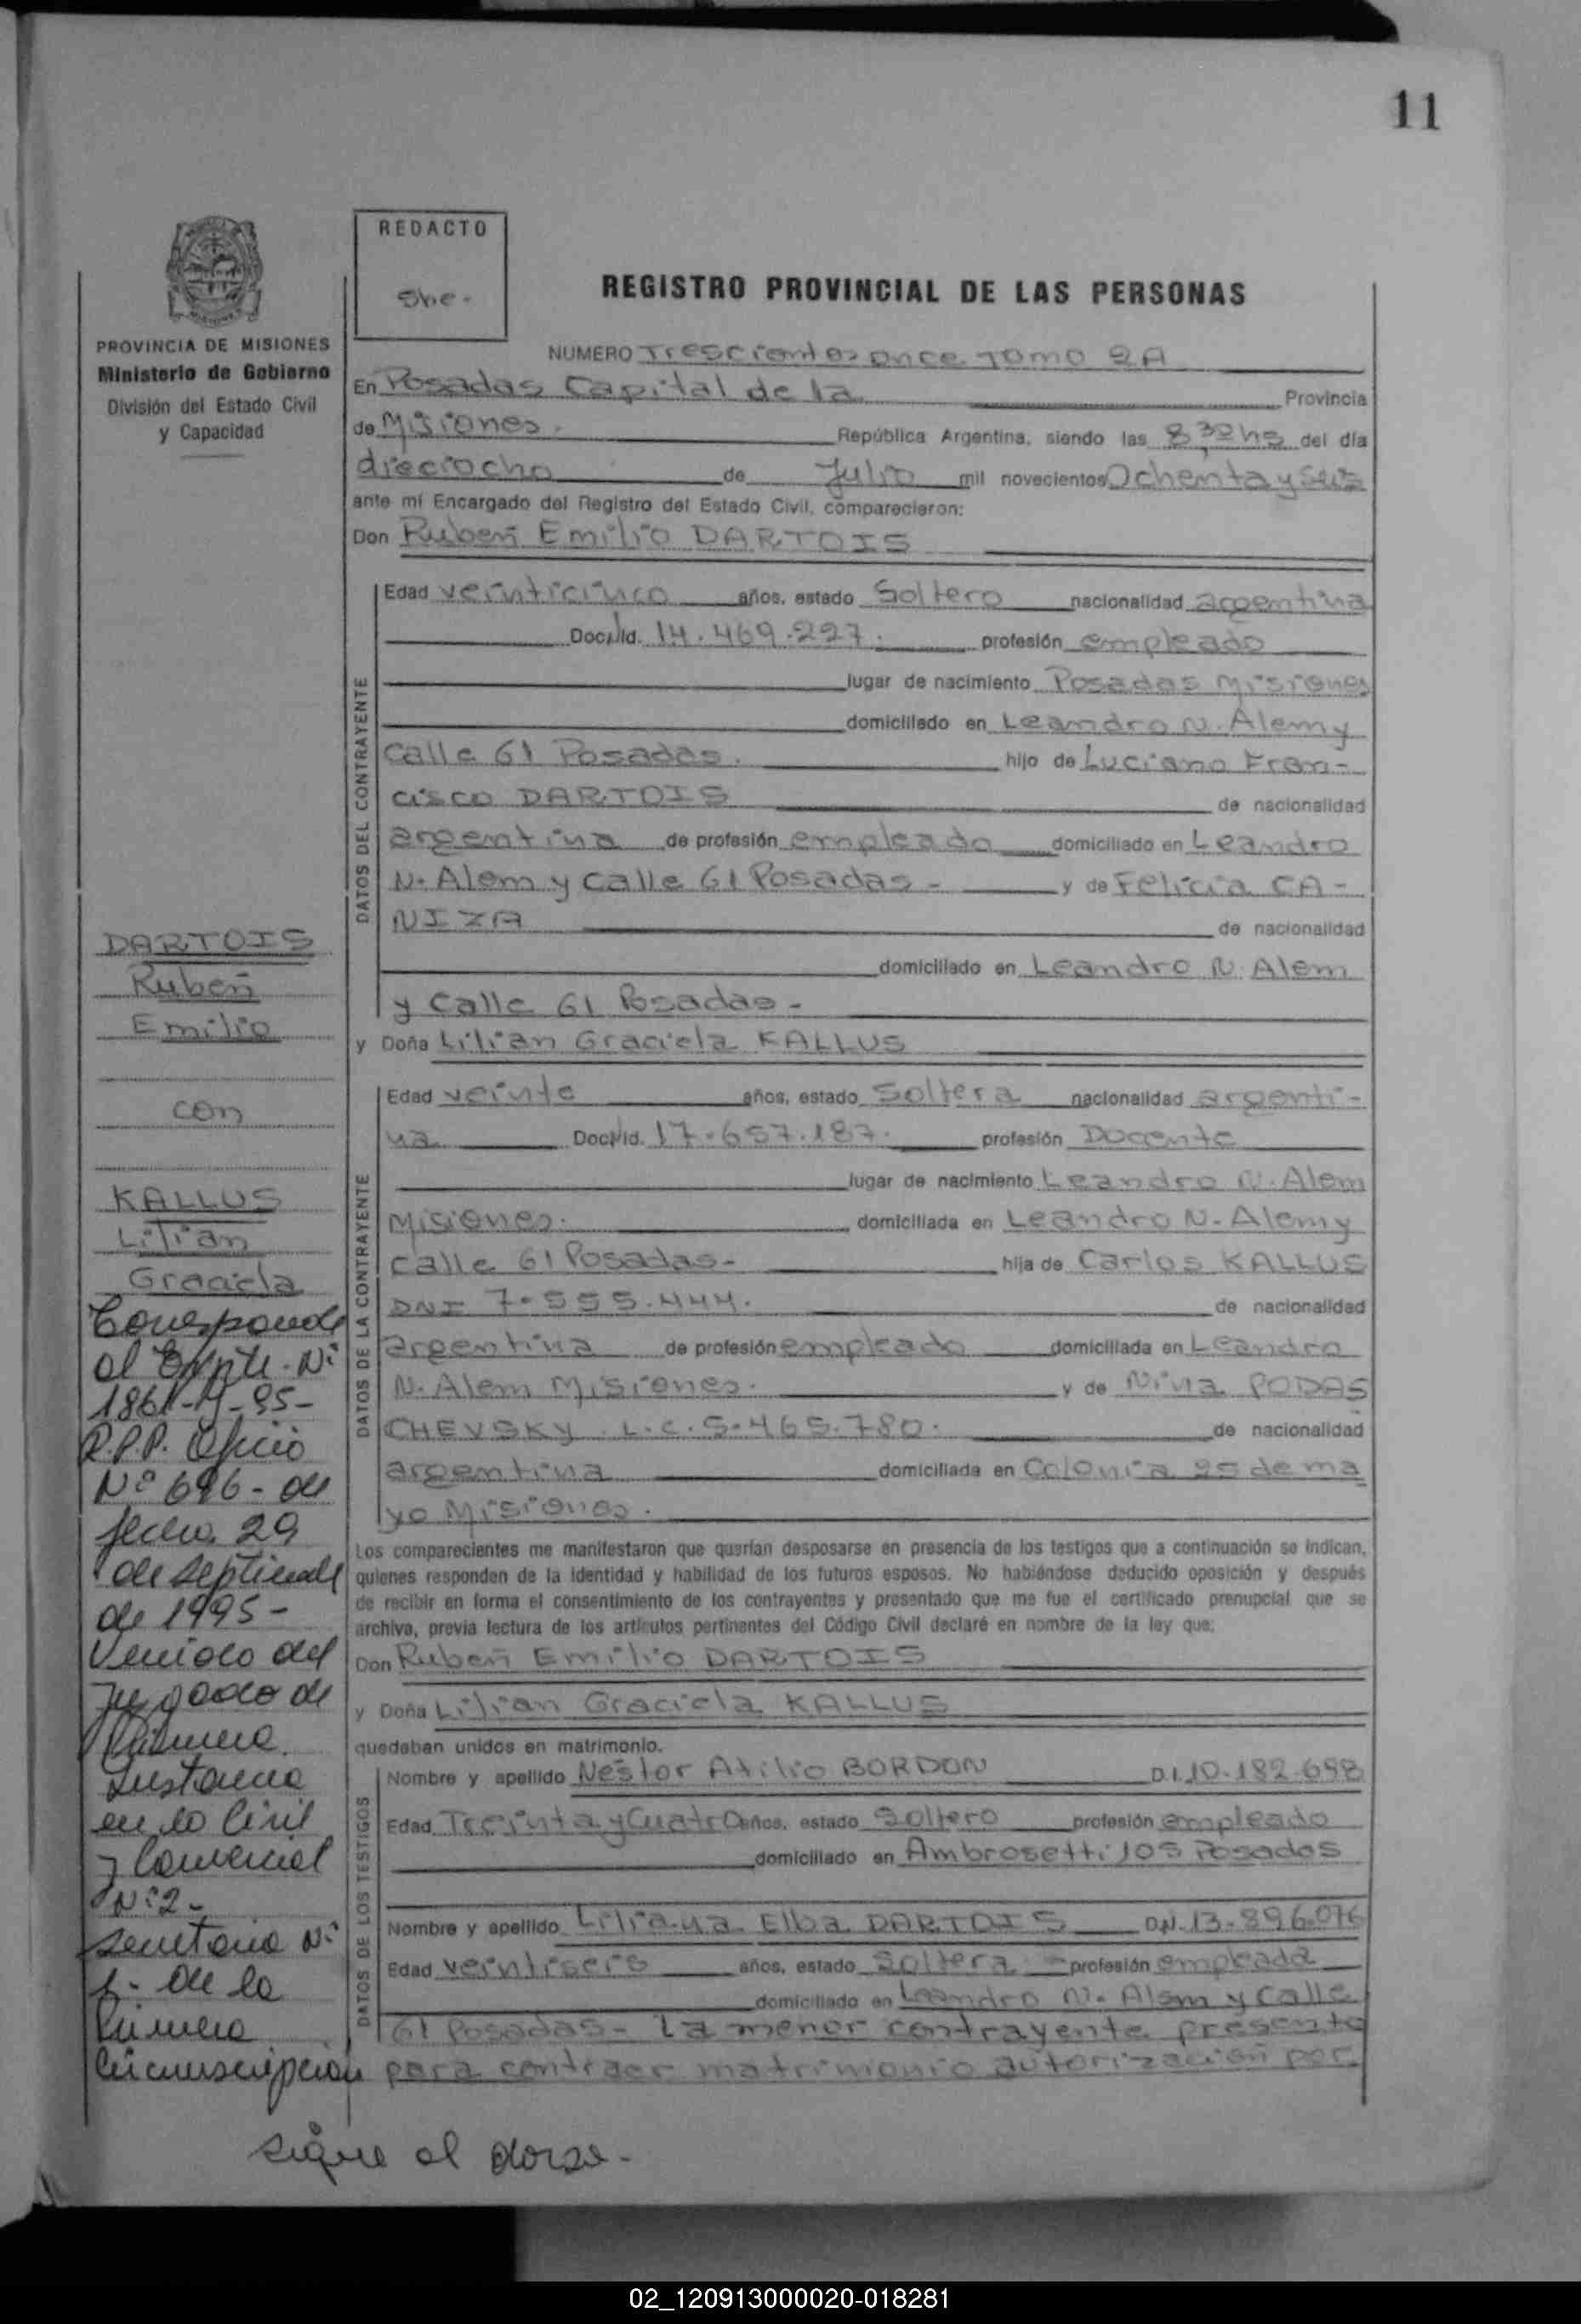 11
REDACTO
REGISTRO PROVINCIAL DE LAS PERSONAS
PROVINCIA DE MISIONES
Ministerio de Gobierno
División del Estado Civil
y Capacidad
NUMERO Trescientos once Tomo 2A
En Posadas Capital de la Provincia
de Misiones. República Argentina, siendo las 8 30 hs del día
dieciocho de Julio mil novecientos Ochenta y Seis
ante mí Encargado del Registro del Estado Civil, comparecieron:
Don Rubén Emilio DARTOIS
DATOS DEL CONTRAYENTE
Edad veinticinco años, estado Soltero nacionalidad argentina
Doc. Id. 14.469.227. profesión empleado
lugar de nacimiento Posadas Misiones
domiciliado en Leandro N. Alem y
calle 61 Posadas. hijo de Luciano Fran-
cisco DARTOIS de nacionalidad
argentina de profesión empleado domiciliado en Leandro
N. Alem y calle 61 Posadas - y de Felicia CA-
NIZA de nacionalidad
domiciliado en Leandro N. Alem
y calle 61 Posadas -
y Doña Lilian Graciela KALLUS
DATOS DE LA CONTRAYENTE
Edad veinte años, estado Soltera nacionalidad argenti-
na Doc. Id. 17.657.187. profesión Docente
lugar de nacimiento Leandro N. Alem
Misiones. domiciliada en Leandro N. Alem y
calle 61 Posadas - hija de Carlos KALLUS
DNI 7.555.444. de nacionalidad
argentina de profesión empleado domiciliada en Leandro
N. Alem Misiones. y de Nina PODAS
CHEVSKY. L.C. 5.465.780. de nacionalidad
argentina domiciliada en Colonia 25 de ma
yo Misiones.
Los comparecientes me manifestaron que querían desposarse en presencia de los testigos que a continuación se indican,
quienes responden de la identidad y habilidad de los futuros esposos. No habiéndose deducido oposición y después
de recibir en forma el consentimiento de los contrayentes y presentado que me fue el certificado prenupcial que se
archiva, previa lectura de los artículos pertinentes del Código Civil declaré en nombre de la ley que:
Don Rubén Emilio DARTOIS
y Doña Lilian Graciela KALLUS
quedaban unidos en matrimonio.
DATOS DE LOS TESTIGOS
Nombre y apellido Néstor Atilio BORDON D.I. 10.182.698
Edad Treinta y Cuatro años, estado Soltero profesión empleado
domiciliado en Ambrosetti 105 Posadas
Nombre y apellido Liliana Elba DARTOIS DNI. 13.896.076
Edad veintiseis años, estado Soltera - profesión empleada
domiciliado en Leandro N. Alem y Calle
61 Posadas - La menor contrayente presenta
para contraer matrimonio autorización por
sigue al dorso -
DARTOIS
Rubén
Emilio
con
KALLUS
Lilian
Graciela
Corresponde
al Expte. Nº
R.P.P. Oficio
Nº 696 - de
fecha 29
de septiembre
de 1995 -
Venido del
Juzgado de
Primera
Instancia
en lo Civil
y Comercial
Nº 2 -
Secretaria Nº
1 - de la
Primera
Circunscripción
02_120913000020-018281